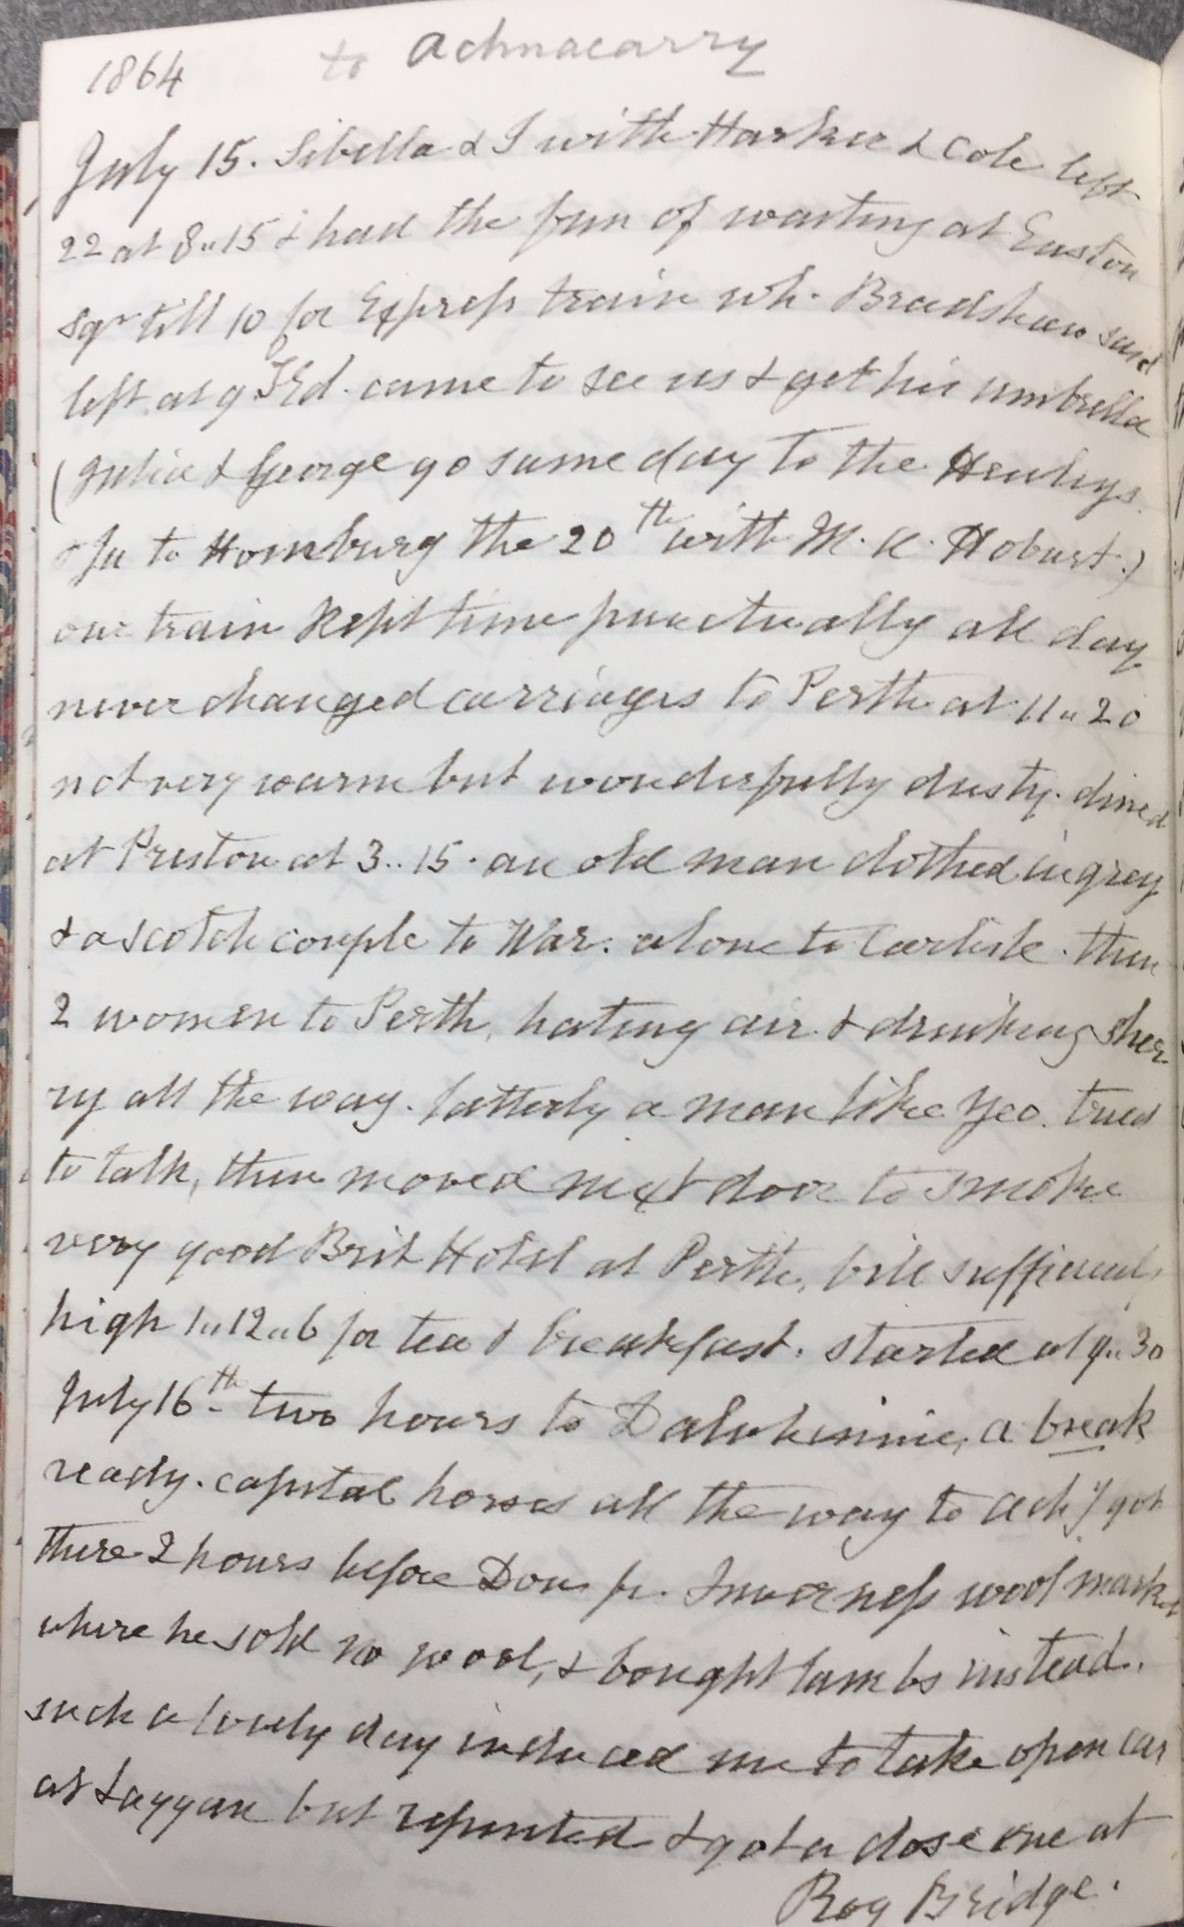 1864 to Achnacarry
July 15. Sibella & I with Harker & Cole left
22 at 8..15 & had the fun of waiting at Euston
Sqr till 10 for Express train wh. Bradshaw said
left at 9 Ed. came to see us & get his umbrella
(Julia & George go same day to the Henleys
& Ju to Homburg the 20th with M. K. Hobart.)
our train kept time punctually all day
never changed carriages to Perth at 11..20
not very warm but wonderfully dusty. dined
at Preston at 3..15. an old man clothed in grey
& a scotch couple to War. alone to Carlisle. then
2 women to Perth, hating air & drinking sher
ry all the way. latterly a man like Yeo. tried
to talk, then moved next door to smoke
very good Brit Hotel at Perth, bill sufficiently
high 1..12..6 for tea & breakfast. started at 9..30
July 16th two hours to Dalwhinnie, a break
ready. capital horses all the way to Ach/y got
there 2 hours before Don fr. Inverness wool market
where he sold no wool, & bought lambs instead.
such a lovely day induced me to take open car
at Laggan but repented & got a close one at
Roy Bridge.